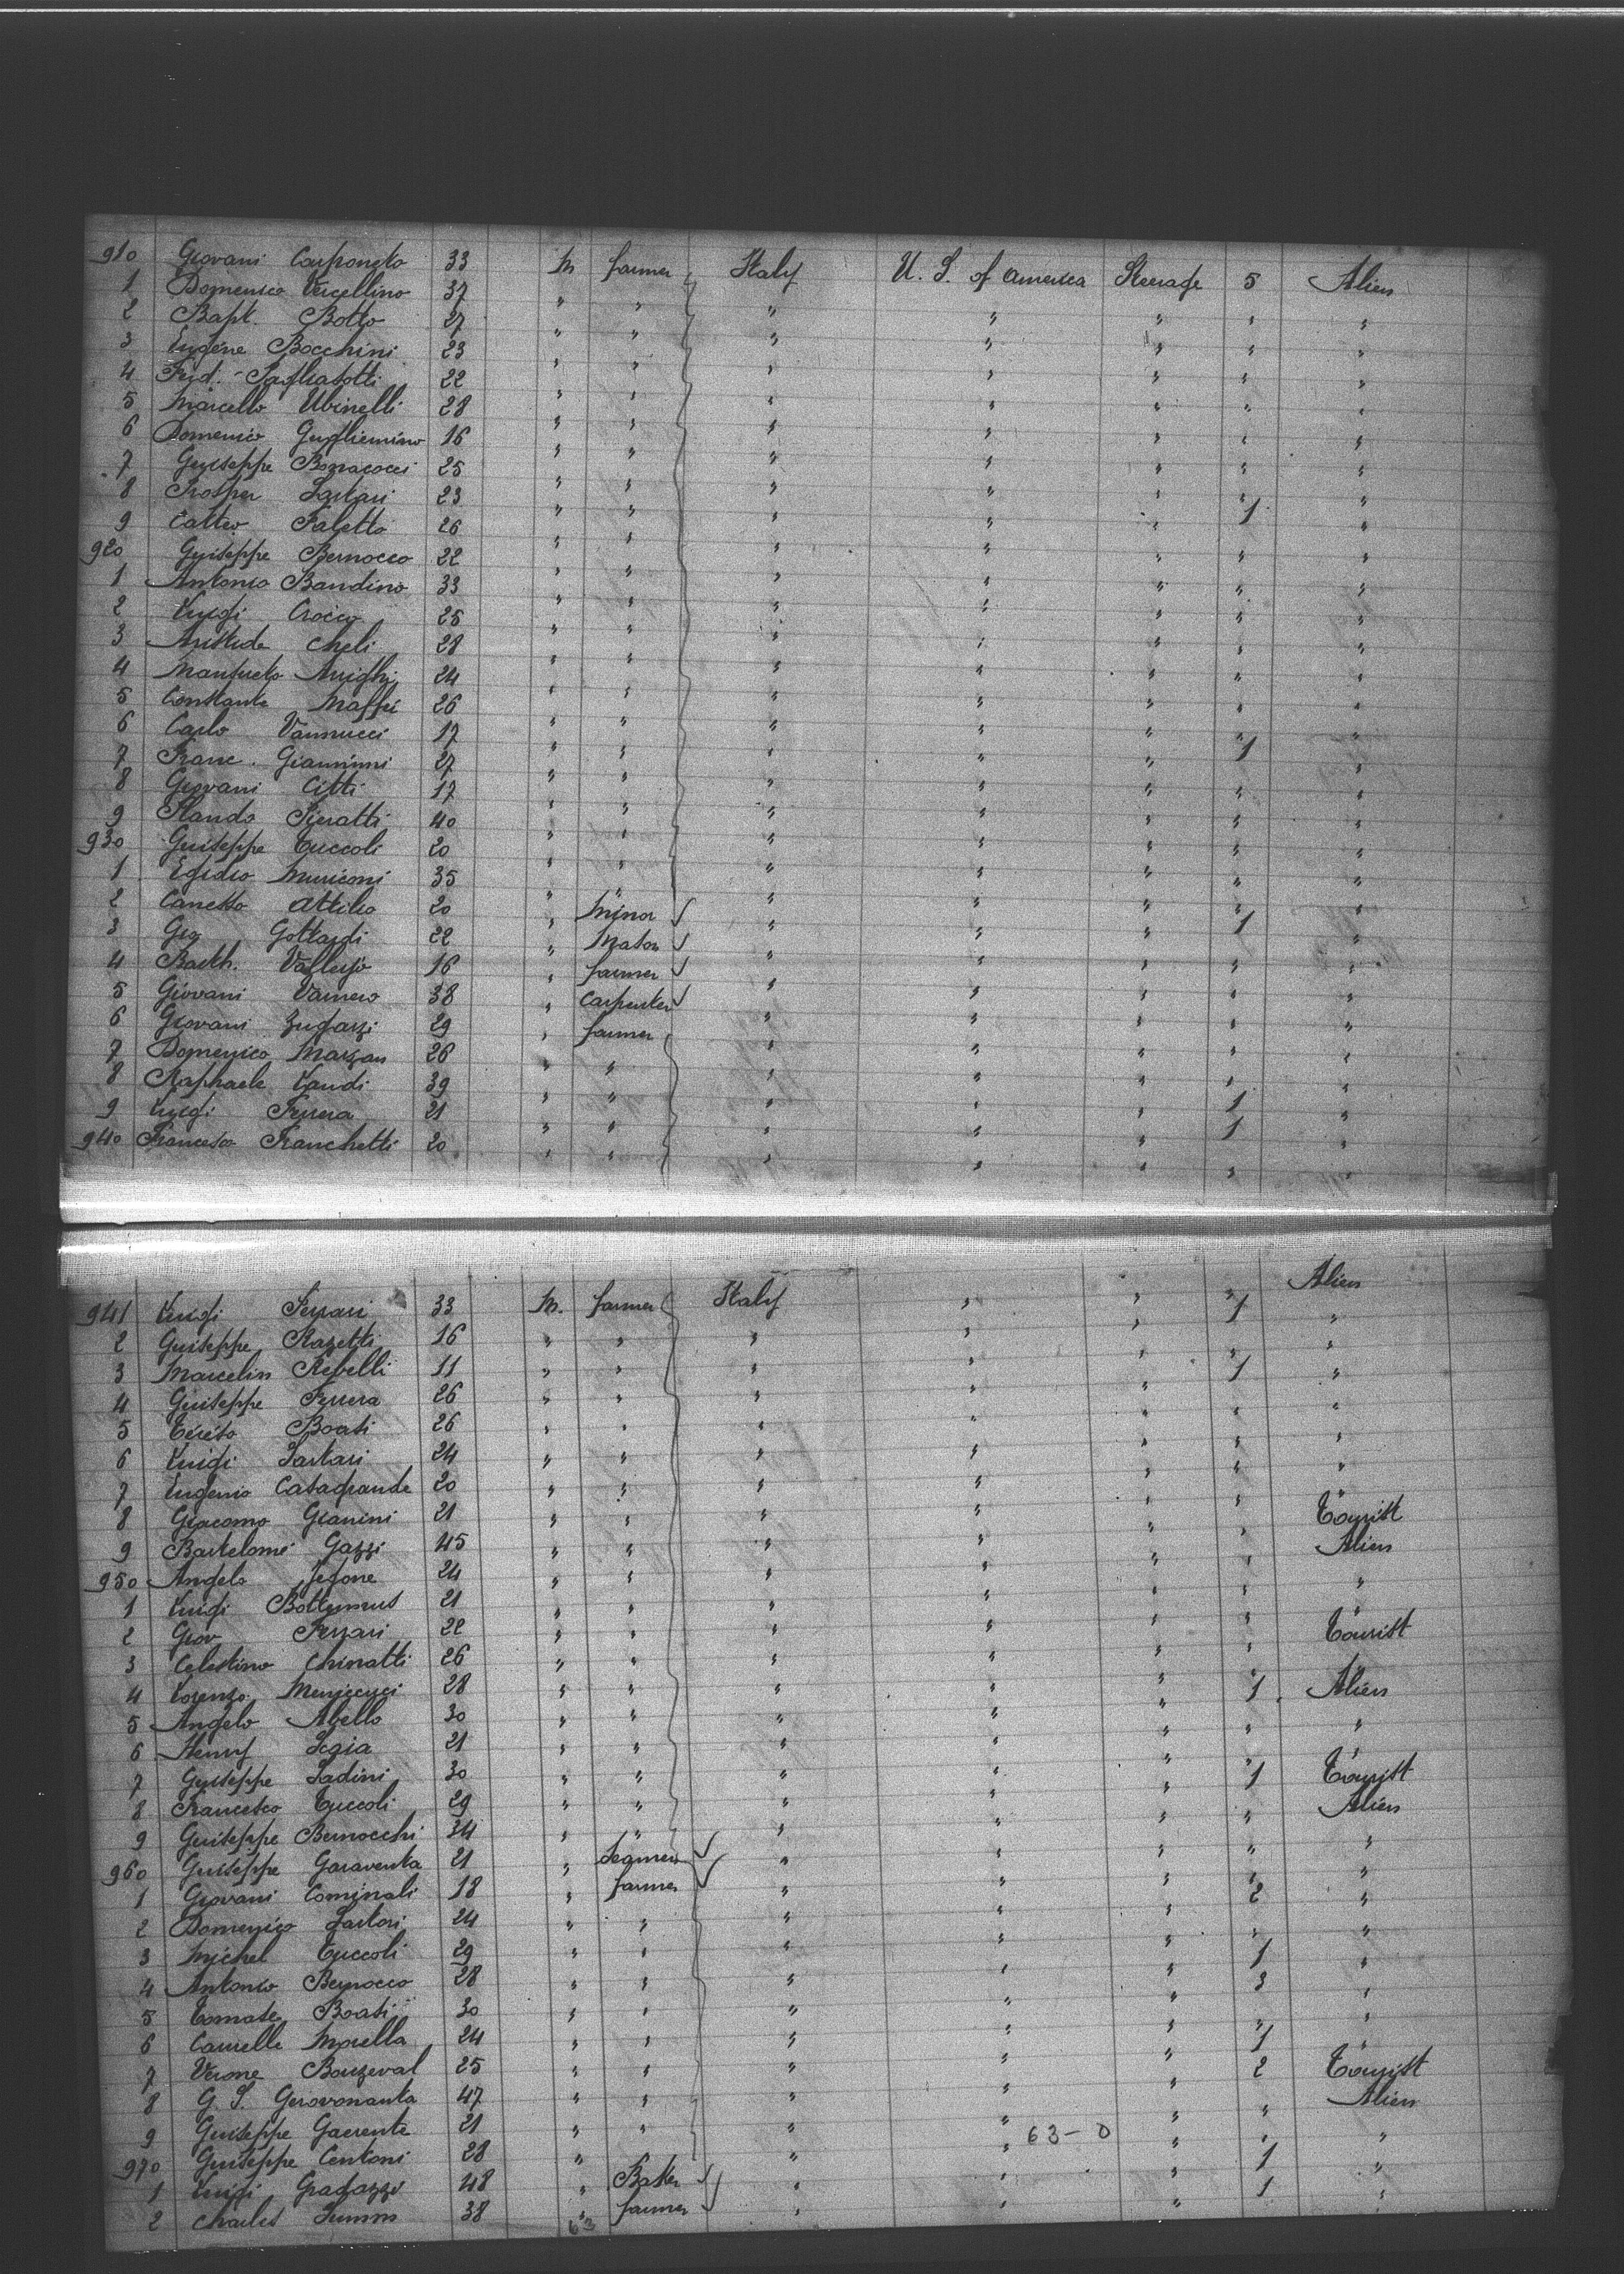 910 Giovani Camponeto 33 M farmer Italy U. S. of America Steerage 5 Alien
1 Domenico Vercellino 37 " " " " " " "
2 Bapt. Botto 27 " " " " " " "
3 Eugene Bocchini 23 " " " " " " "
4 Frid. 22 " " " " " " "
5 Marcello Ubinelli 28 " " " " " " "
6 Domenico Gugliemino 16 " " " " " " "
7 Guiseppe Bonacocci 25 " " " " " " "
8 Prosper Sartari 23 " " " " " 1 "
9 Catteo Faletto 26 " " " " " " "
920 Guiseppe Bernocco 22 " " " " " " "
1 Antonio Bandino 33 " " " " " " "
2 Luigi Crocco 25 " " " " " " "
3 Aristide Cheli 28 " " " " " " "
4 Mansueto Arrighi 24 " " " " " " "
5 Constante Maffei 26 " " " " " " "
6 Carlo Vannucci 17 " " " " " 1 "
7 Franc. Giannini 27 " " " " " " "
8 Giovani Citti 17 " " " " " " "
9 Pieratti 40 " " " " " " "
930 Guiseppe Tuccoli 20 " " " " " " "
1 Egidio Muriconi 35 " " " " " " "
2 Canesso Attilio 20 " Minor " " " 1 "
3 Gio Gottardi 22 " Mason " " " " "
4 Barth. 16 " farmer " " " " "
5 Giovani Varnero 38 " Carpenter " " " " "
6 Giovani Zugazzi 29 " farmer " " " " "
7 Domenico Marzan 26 " " " " " " "
8 Raphaele Landi 39 " " " " " 1 "
9 Luigi Ferrera 21 " " " " " 1 "
940 Francesco Franchetti 20 " " " " " " "
941 Luigi Ferrari 33 M. farmer Italy " " 1 Alien
2 Guiseppe Razetti 16 " " " " " " "
3 Marcelin Rebelli 11 " " " " " 1 "
4 Guiseppe Ferrera 26 " " " " " " "
5 Boati 26 " " " " " " "
6 Luigi Sartari 24 " " " " " " "
7 Eugenio Casagrande 20 " " " " " " "
8 Giacomo Gianini 21 " " " " " " Tourist
9 Bartelome Gazzi 45 " " " " " " Alien
950 Angelo 24 " " " " " " "
1 Luigi 21 " " " " " " "
2 Giov Ferrari 22 " " " " " " Tourist
3 Celestino Chinatti 26 " " " " " "
4 Lorenzo Menicucci 28 " " " " " 1 Alien
5 Angelo Abello 30 " " " " " " "
6 Henry 21 " " " " " " "
7 Guiseppe Ladini 30 " " " " " 1 Tourist
8 Francesco Tuccoli 29 " " " " " " Alien
9 Guiseppe Bernocchi 34 " " " " " " "
960 Guiseppe Garaventa 21 " Seamen " " " " "
1 Giovani Cominali 18 " farmer " " " 2 "
2 Domenico Sartori 24 " " " " " " "
3 Michel Tuccoli 29 " " " " " 1 "
4 Antonio Bernocco 28 " " " " " 3 "
5 Tomase Boati 30 " " " " " " "
6 Camelle Morella 24 " " " " " 1 "
7 Verone Bouzeval 25 " " " " " 2 Tourist
8 G. S. Gerovonanta 47 " " " " " " Alien
9 Guiseppe Gaerente 21 " " " " 63-0 " " "
970 Guiseppe Centoni 28 " " " " " 1 "
1 Luigi Gragazzi 48 " Baker " " " 1 "
2 Charles 38 " farmer " " "
63